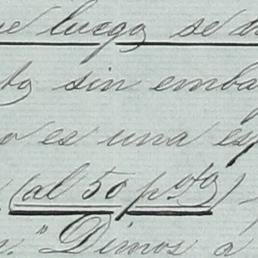 luego se
sin emba
o es una es
(al 50 p%)
n." Dimos a